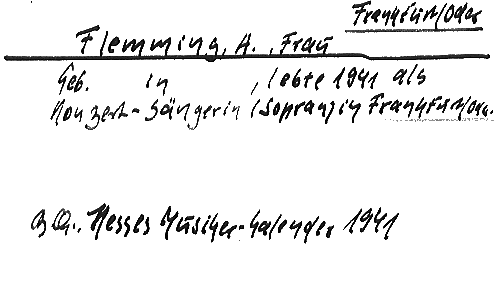 Frankfurt/Oder
Flemming, A., Frau
Geb. in , lebte 1941 als
Konzert-Sängerin (Sopran) in Frankfurt/Oder.
Hesses Musiker-Kalender 1941